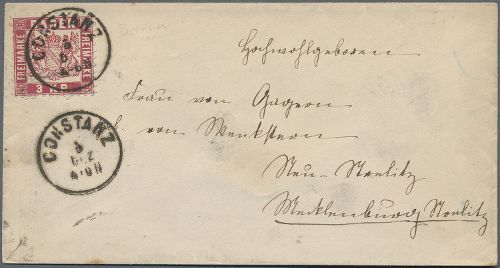 FREIMARKE
FREIMARKE
3 KR.
CONSTANZ
CONSTANZ
5
DEZ
Hochwohlgeboren
Frau von Gagern
von Wenkstern
Neu-Strelitz
Mecklenburg Strelitz